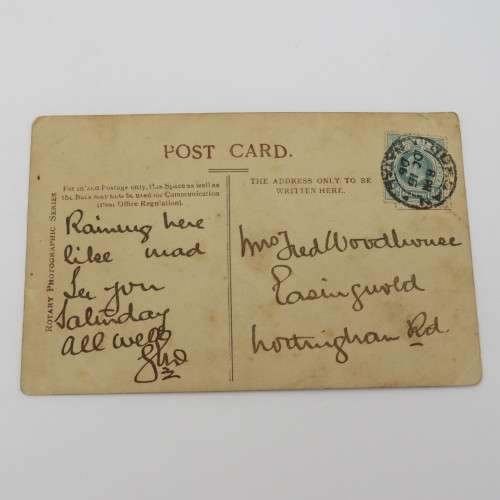 POST CARD.
For Inland Postage only, this Space as well as
the Back may now be used for Communication
(Post Office Regulation).
THE ADDRESS ONLY TO BE
WRITTEN HERE.
ROTARY PHOTOGRAPHIC SERIES
Raining here
like mad
See you
Saturday
All well
Mrs Fred Woodhouse
Easingwold
Nottingham Rd.